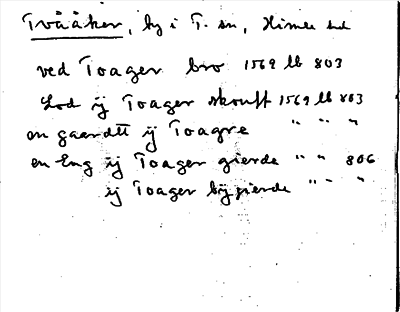 Tvååker, by i T. sn, Himle hd
ved Toager bro 1569 lb 803
Lod ij Toager skouff 1569 lb 803
en gaardtt ij Toagre " " "
en Eng ij Toager gierde " " 806
ij Toager bÿgierde " " "